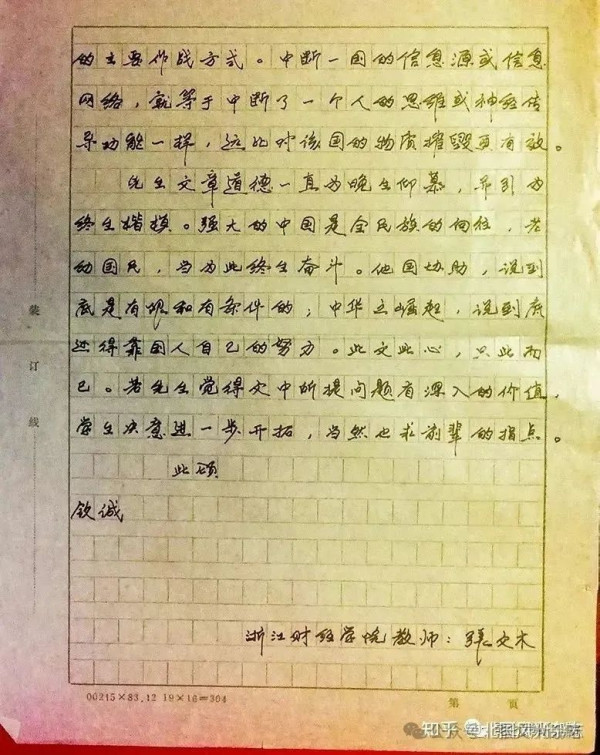 的主要作战方式。中断一国的信息源或信息
网络，就等于中断了一个人的思维或神经传
导功能一样，远比对该国的物质摧毁更有效。
先生文章道德一直为晚生仰慕，早引为
终生楷模。强大的中国是全民族的向往，若
幼国民，当为此终生奋斗。他国协助，说到
底是有限和有条件的；中华之崛起，说到底
还得靠国人自己的努力。此文此心，只此而
已。若先生觉得文中所提问题有深入的价值，
学生决意进一步开拓，当然也求前辈的指点。
此颂
钦诚
浙江财经学院教师：张文木
装
订
线
00215×83.12 19×16=304
第 页
知乎 @北国风